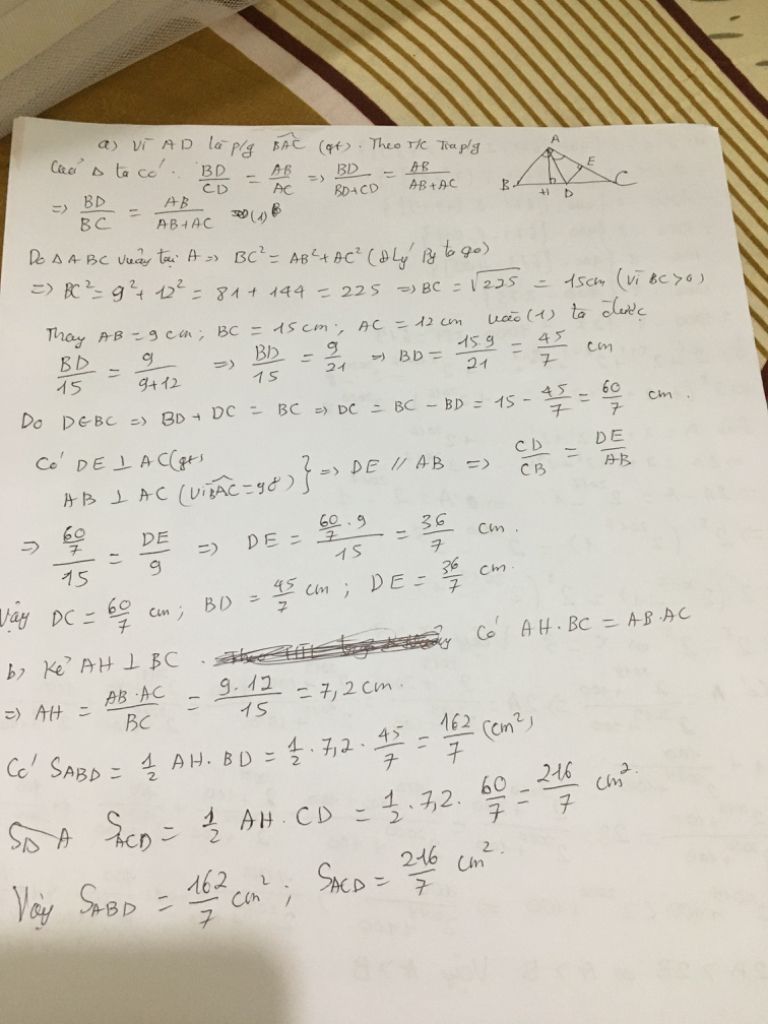 a) Vì AD là p/g \widehat{BAC} (gt). Theo T/C Tia p/g
của Δ ta có: \frac{BD}{CD} = \frac{AB}{AC} => \frac{BD}{BD+CD} = \frac{AB}{AB+AC}
A
B H D C
E
=> \frac{BD}{BC} = \frac{AB}{AB+AC} (1)
Do Δ ABC vuông tại A => BC² = AB² + AC² (đlý Py ta go)
=> BC² = 9² + 12² = 81 + 144 = 225 => BC = \sqrt{225} = 15cm (Vì BC > 0)
Thay AB = 9 cm; BC = 15 cm; AC = 12 cm vào (1) ta được
\frac{BD}{15} = \frac{9}{9+12} => \frac{BD}{15} = \frac{9}{21} => BD = \frac{15.9}{21} = \frac{45}{7} cm
Do D∈BC => BD + DC = BC => DC = BC - BD = 15 - \frac{45}{7} = \frac{60}{7} cm.
Có DE ⊥ AC (gt)
AB ⊥ AC (Vì \widehat{BAC} = 90) } => DE // AB => \frac{CD}{CB} = \frac{DE}{AB}
=> \frac{\frac{60}{7}}{15} = \frac{DE}{9} => DE = \frac{\frac{60}{7} . 9}{15} = \frac{36}{7} cm.
Vậy DC = \frac{60}{7} cm; BD = \frac{45}{7} cm; DE = \frac{36}{7} cm.
b, Kẻ AH ⊥ BC. Có AH.BC = AB.AC
=> AH = \frac{AB.AC}{BC} = \frac{9.12}{15} = 7,2 cm.
Có S_{ABD} = \frac{1}{2} AH.BD = \frac{1}{2} . 7,2 . \frac{45}{7} = \frac{162}{7} (cm²)
S_{ACD} = \frac{1}{2} AH.CD = \frac{1}{2} . 7,2 . \frac{60}{7} = \frac{216}{7} cm².
Vậy S_{ABD} = \frac{162}{7} cm²; S_{ACD} = \frac{216}{7} cm².